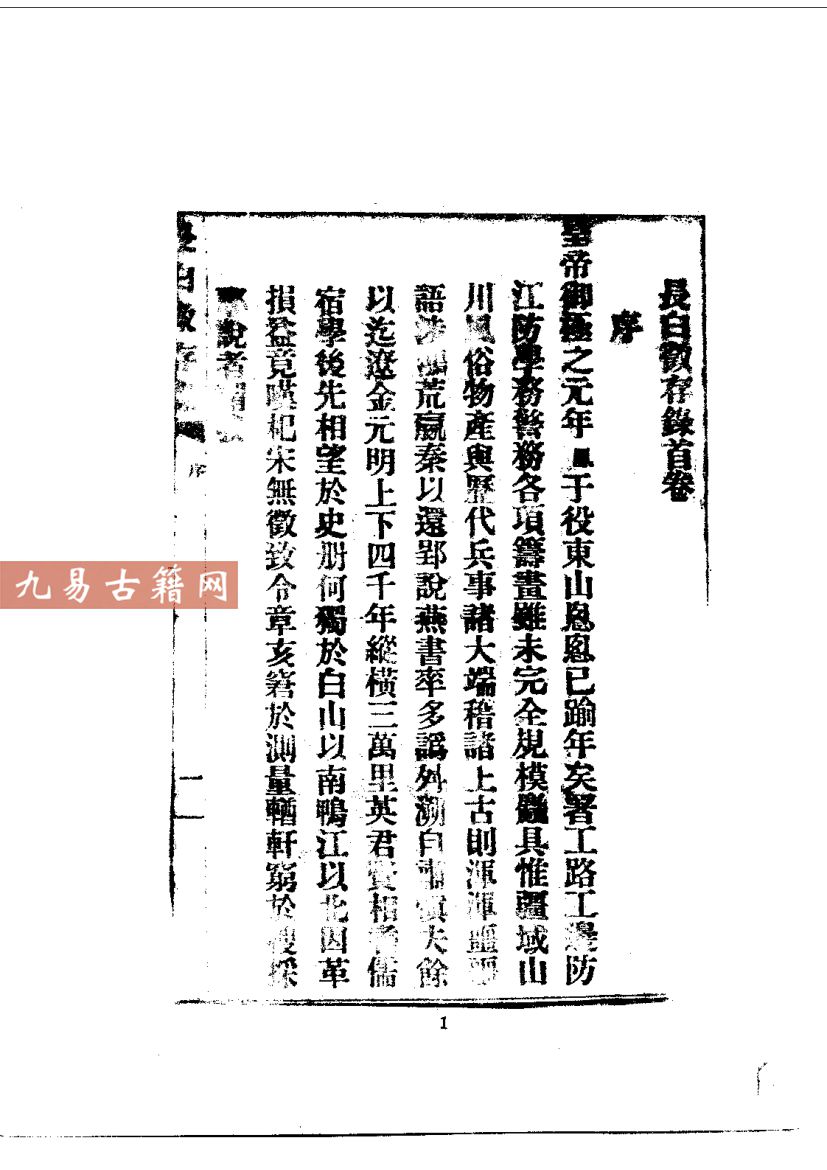 長白徵存錄首卷
序
皇帝御極之元年鳳于役東山悤悤已踰年矣署工路工邊防
江防學務警務各項籌畫雖未完全規模粗具惟疆域山
川風俗物產與歷代兵事諸大端稽諸上古則渾渾噩噩
語涉鴻荒嬴秦以還郢說燕書率多譌舛溯自肅慎夫餘
以迄遼金元明上下四千年縱橫三萬里英君賢相耆儒
宿學後先相望於史册何獨於白山以南鴨江以北因革
損益竟嘆杞宋無徵致令章亥窘於測量輶軒窮於搜採
說者謂
長白徵存錄
序
一
九易古籍网
1